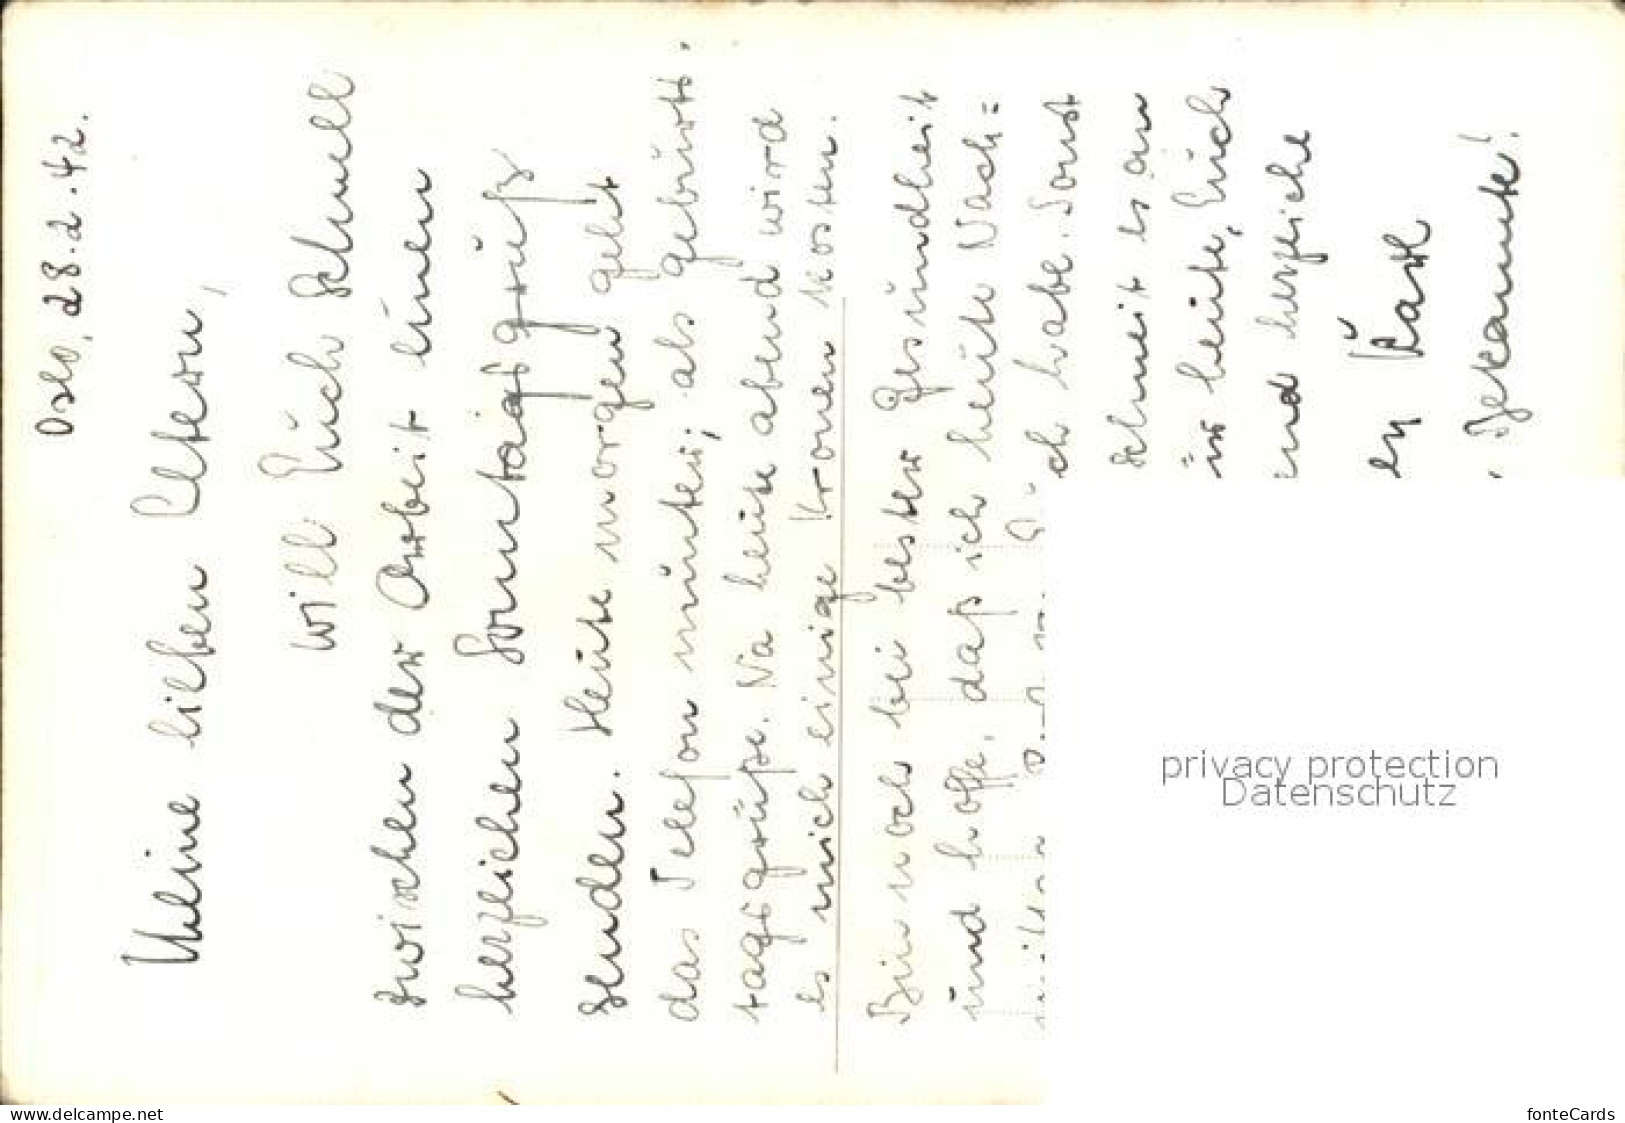 Oslo, 28.2.42.
Meine lieben Eltern,
will Euch schnell
zwischen der Arbeit einen
herzlichen Sonntagsgruß
senden. Heute morgen geht
das Telefon munter; als Geburts-
tagsgrüße. Na heute abend wird
es mich einige Kronen kosten.
Bin noch bei bester Gesundheit
und hoffe, daß ich heute Nach=
ch habe. Sonst
schneit es an
ür heute, Euch
und herzliche
Karl
Bekannte!
privacy protection
Datenschutz
www.delcampe.net
fonteCards